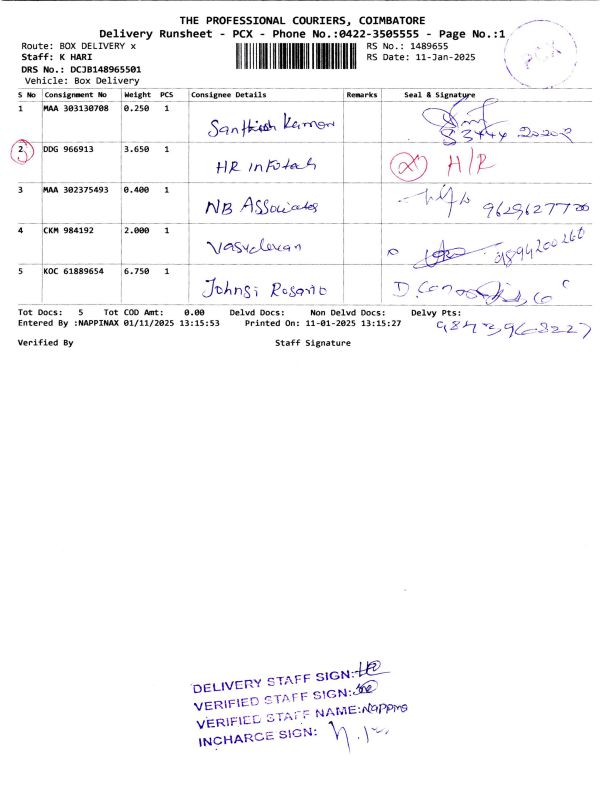 THE PROFESSIONAL COURIERS, COIMBATORE
Delivery Runsheet - PCX - Phone No.:0422-3505555 - Page No.:1
Route: BOX DELIVERY x RS No.: 1489655
Staff: K HARI RS Date: 11-Jan-2025
DRS No.: DCJB148965501
Vehicle: Box Delivery
PCX
S No Consignment No Weight PCS Consignee Details Remarks Seal & Signature
1 MAA 303130708 0.250 1
2 DDG 966913 3.650 1 HR infotech H/R
3 MAA 302375493 0.400 1 NB Associates 9629627700
4 CKM 984192 2.000 1 Vasudevan 9894200260
5 KOC 61889654 6.750 1 Johnsi Rosario
Tot Docs: 5 Tot COD Amt: 0.00 Delvd Docs: Non Delvd Docs: Delvy Pts:
Entered By :NAPPINAX 01/11/2025 13:15:53 Printed On: 11-01-2025 13:15:27
Verified By Staff Signature
DELIVERY STAFF SIGN:
VERIFIED STAFF SIGN:
VERIFIED STAFF NAME:
INCHARGE SIGN: